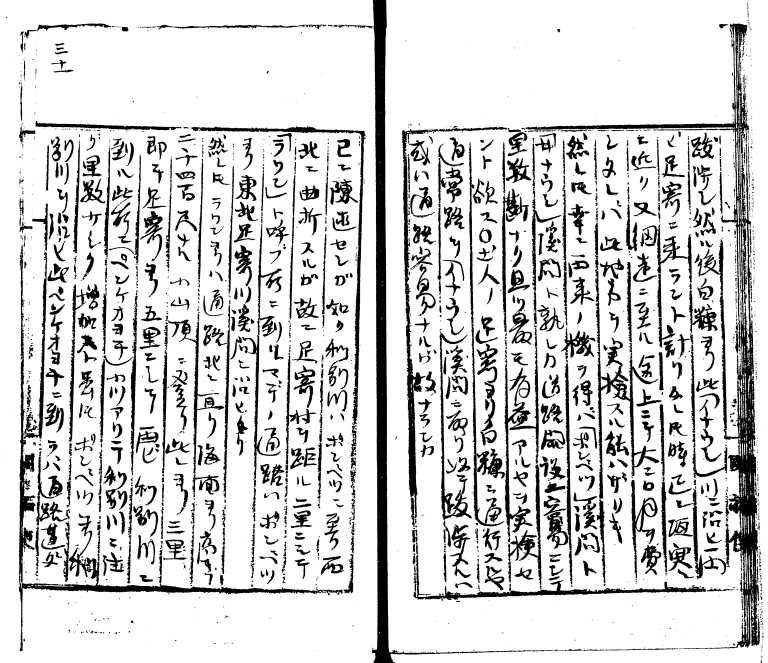 跋渉シ然ル後白糠ヨリ此「イナウシ」川ニ沿ヒ
ビ足寄ニ来ラント計リタレ氏時正ニ
ニ近ク又網走ニ至ル途上ニテ大ニ日月ヲ費
シタレバ此地方ヲ実検スル能ハザリキ
然レ氏幸ニ再来ノ機ヲ得バ「ポンベツ」渓間ト
「イナウシ」渓間ト孰レカ道路開設容易ニシテ
里数斯ナク且ツ最モ有益ナルヤヲ実検セ
ント欲ス〇土人ノ足寄ヨリ白糠ニ通行スルヤ
通常路ヲ「イナウシ」渓間ニ取リ跋渉スルハ
或ハ通路容易ナルガ故ナランカ
三十一
已ニ陳述セシガ如ク利別川ハ「ポンベツ」ニ至テ西
北ニ曲折スルガ故ニ足寄村ヲ距ル二里ニシテ
「ラウンレ」ト呼ブ所ニ到ルマデノ通路ハ「ポンベツ」
ヨリ東北足寄川渓間ニ沿ヒ
然レ氏「ラウンレ」ヨリハ通路北ニ直リ海面ヨリ高キ
二千四百尺ナル小山頂ニ登リ此レヨリ三里
即チ足寄ヨリ五里ニシテ再ビ利別川ニ
到ル此所ニ「ペンケオヨチ」小川アリテ利別川ニ注
グ里数少シク増加スト雖氏「ポンベツ」ヨリ利
別川ニ沿ヒ此「ペンケオヨチ」ニ到ラバ通路